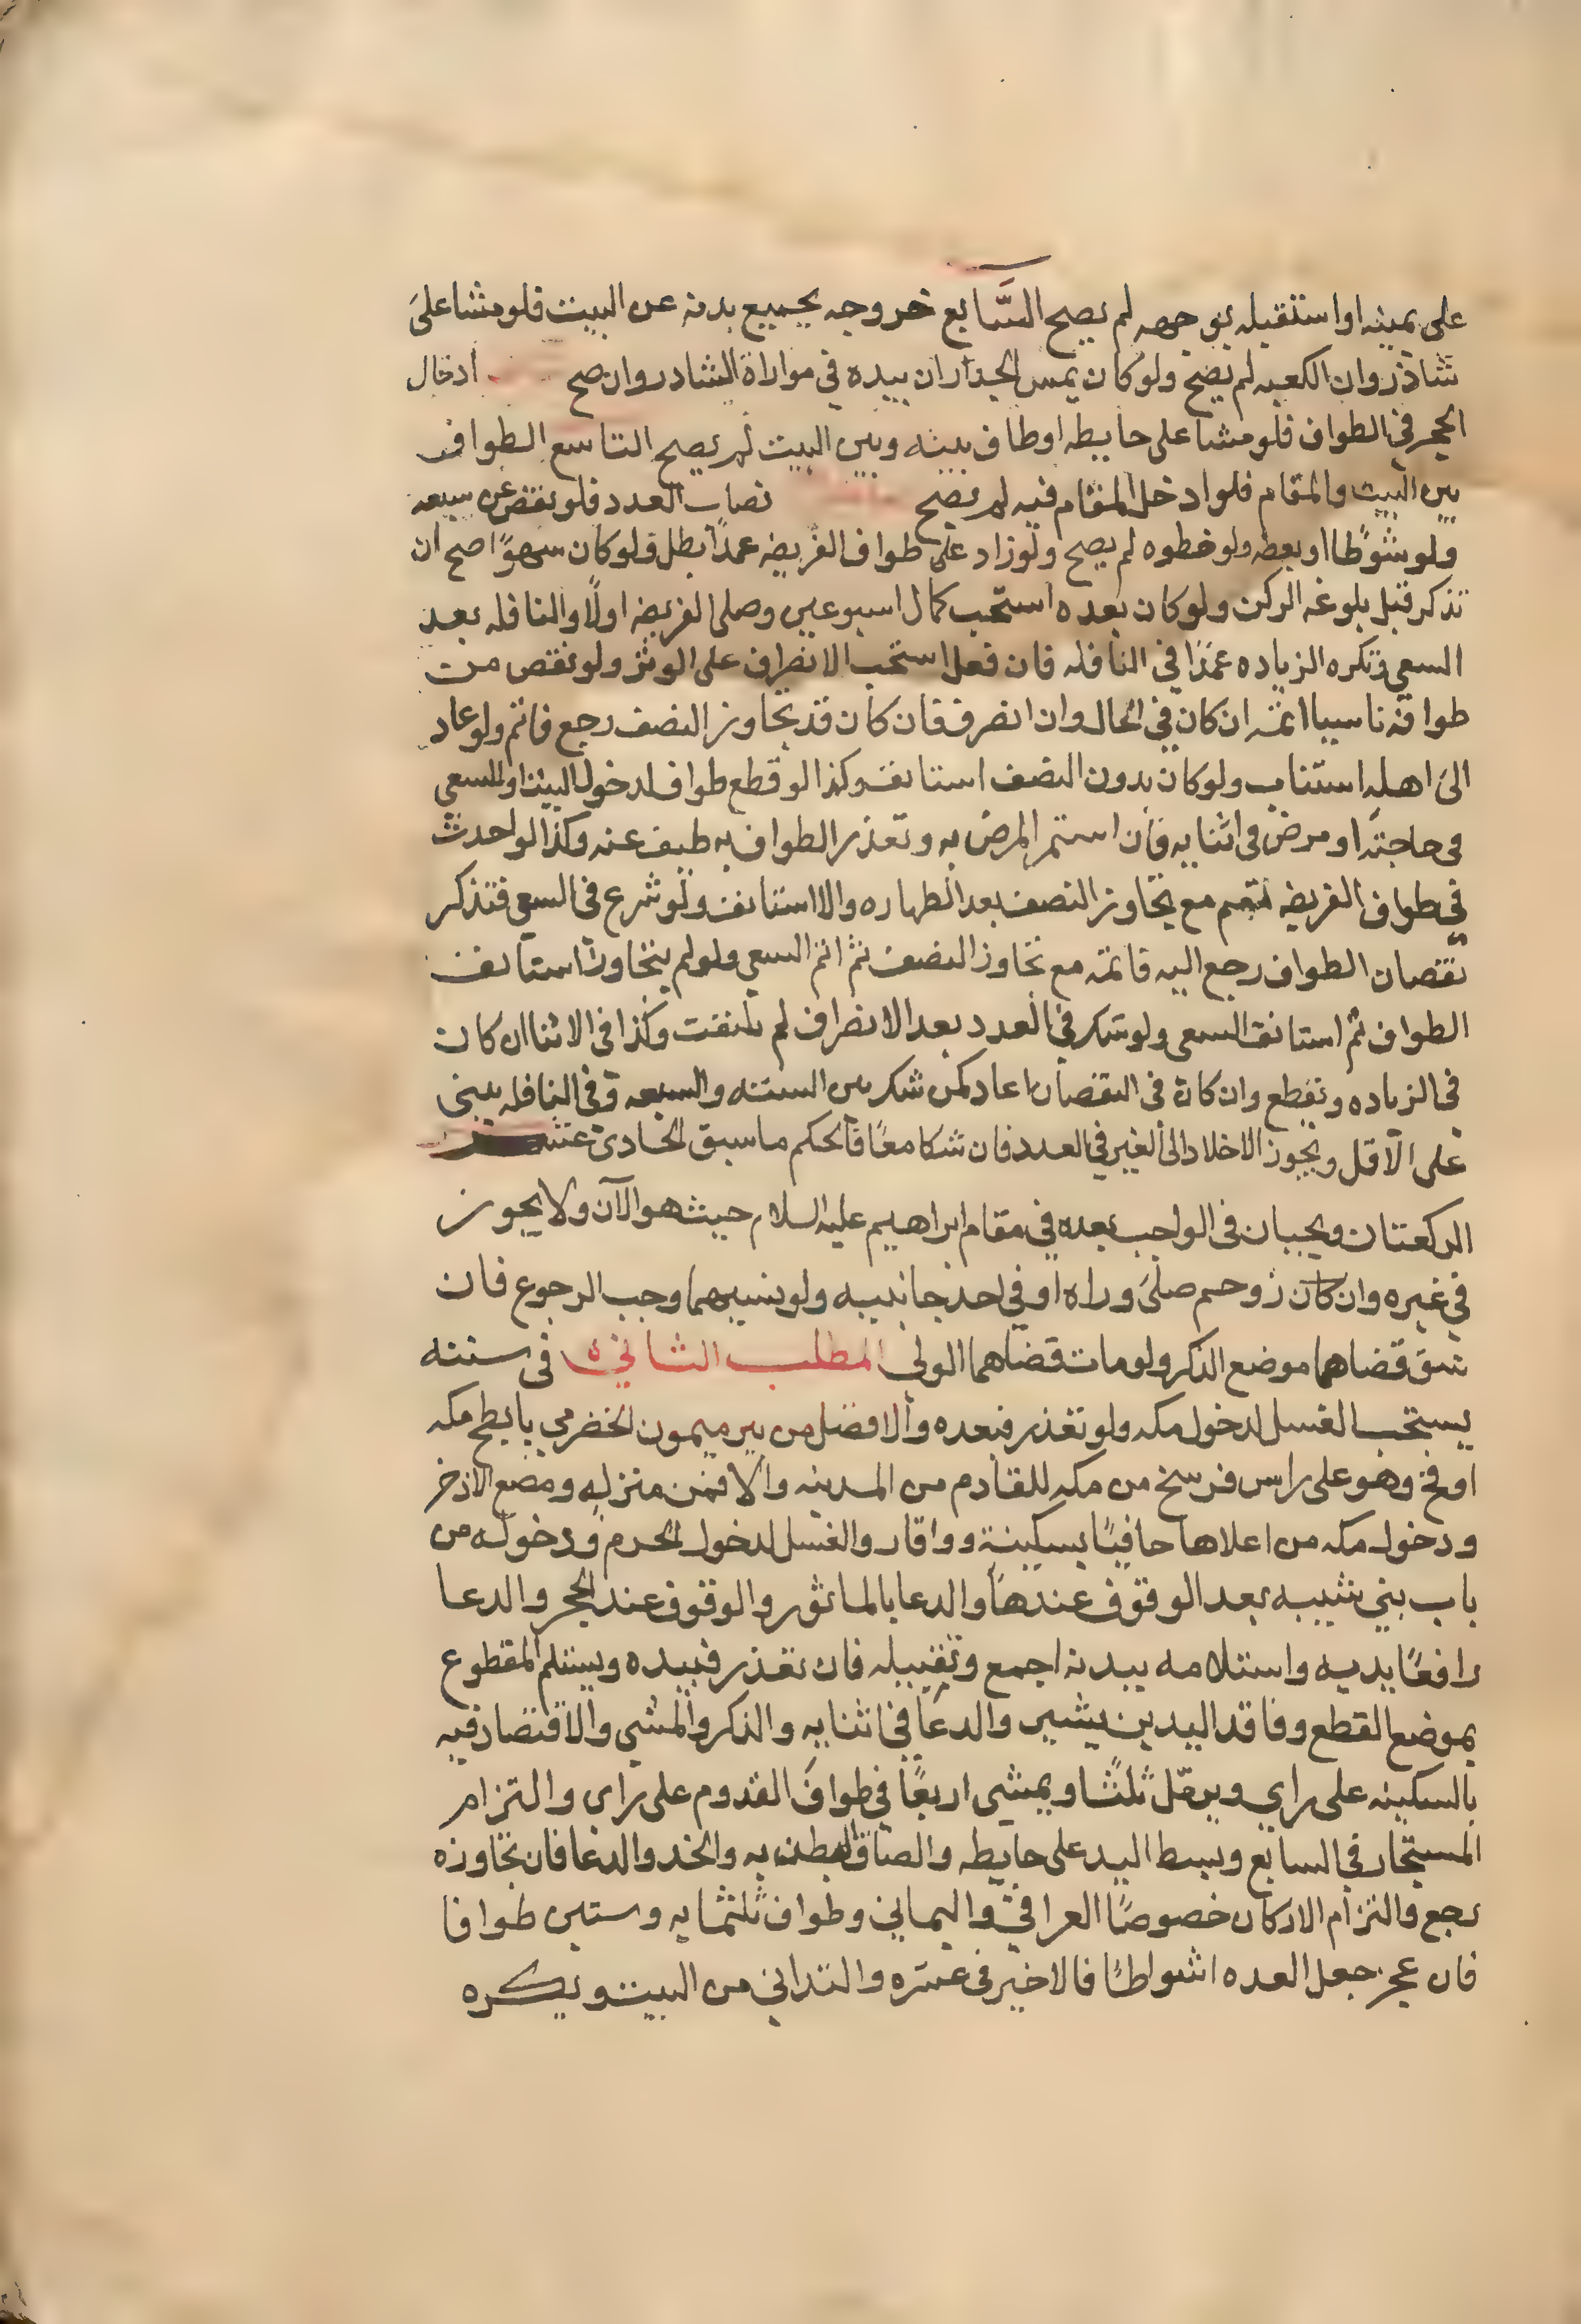 على يمينه او استقبله بوجهه لم يصح السَّابع خروجه بجميع بدنه عن البيت فلو مشا على
شاذروان الكعبه لم يصح ولو كان يمس الجدار ان بيده في موازاة الشاذروان صح ادخال
الحجر في الطواف فلو مشا على حايطه او طاف بينه وبين البيت لم يصح التاسع الطواف
بين البيت والمقام فلو ادخل المقام فيه لم يصح نصاب العدد فلو نقص عن سبعه
ولو شوطًا او بعضه ولو خطوه لم يصح ولو زاد على طواف الفريضه عمدًا بطل ولو كان سهوًا صح ان
تذكر قبل بلوغه الركن ولو كان بعده استحب كمال اسبوعين وصلى الفريضه اولًا والنافله بعد
السعي وتكره الزياده عمدًا في النافله فان فعل استحب الانصراف على الوتر ولو نقص من
طوافه ناسيا اتمه ان كان في الحال وان انصرف فان كان قد تجاوز النصف رجع فاتم ولو عاد
الى اهله استناب ولو كان بدون النصف استانف وكذا لو قطع طواف لدخول البيت او السعي
في حاجته او مرض في اثنايه فان استمر المرض به وتعذر الطواف به طيف عنه وكذا لو احدث
في طواف الفريضه فيتم مع تجاوز النصف بعد الطهاره والا استانف ولو شرع في السعي فتذكر
نقصان الطواف رجع اليه فاتمه مع تجاوز النصف ثم اتم السعي ولو لم يتجاوز استانف
الطواف ثم استانف السعي ولو شك في العدد بعد الانصراف لم يلتفت وكذا في الاثنا ان كان
في الزياده وتقطع وان كان في النقصان اعاد كمن شك بين السته والسبعه وفي النافله يبنى
على الاقل ويجوز الاخلاد الى الغير في العدد فان شكا معًا فالحكم ما سبق الحادى عشر
الركعتان ويجبان في الواجب بعده في مقام ابراهيم عليه السلام حيث هو الآن ولا يجوز
في غيره وان كان زوحم صلى وراه او في احد جانبيه ولو نسيهما وجب الرجوع فان
شق قضاهما موضع الذكر ولو مات قضاهما الولى المطلب الثاني في سننه
يستحب الغسل لدخول مكه ولو تعذر فبعده والافضل من بير ميمون الحضرمي بابطح مكه
او فخ وهو على راس فرسخ من مكه للقادم من المدينه والا فمن منزله ومضغ الاذخر
ودخول مكه من اعلاها حافيًا بسكينة وواقار والغسل لدخول الحرم ودخوله من
باب بني شيبه بعد الوقوف عندها والدعا بالماثور والوقوف عند الحجر والدعا
رافعًا يديه واستلامه ببدنه اجمع وتقبيله فان تعذر فبيده ويستلم المقطوع
بموضع القطع وفاقد اليدين يشير والدعا في اثنايه والذكر والمشى والاقتصاد فيه
بالسكينه على راي ويرمّل ثلثًا ويمشى اربعًا في طواف القدوم على راى والتزام
المستجار في السابع وبسط اليد على حايطه والصاق البطن به والخد والدعا فان تجاوزه
رجع والتزام الاركان خصوصًا العراقي واليماني وطواف ثلثمايه وستين طوافا
فان عجز جعل العده اشواطًا فالاخير في عشره والتداني من البيت ويكره